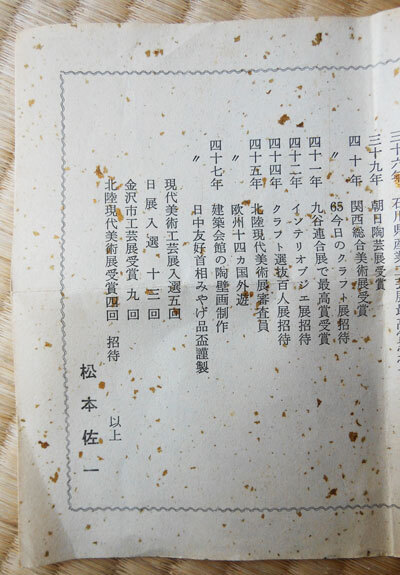 三十六年 石川県産業工芸展最高
三十九年 朝日陶芸展受賞
四十年 関西総合美術展受賞
〃 65今日のクラフト展招待
四十一年 九谷連合展で最高賞受賞
四十二年 インテリオブジェ展招待
四十四年 クラフト選抜百人展招待
四十五年 北陸現代美術展審査員
〃 欧州十四カ国外遊
四十七年 建築会館の陶壁画制作
〃 日中友好首相みやげ品盃謹製
現代美術工芸展入選五回
日展入選 十三回
金沢市工芸展受賞 九回
北陸現代美術展受賞四回 招待
以上
松本佐一